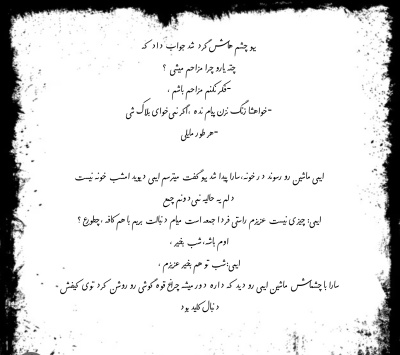 یهو چشم هاش گرد شد جواب داد که
چته یارو چرا مزاحم میشی ؟
-فکر نکنم مزاحم باشم ،
-خواهشا زنگ نزن پیام نده ، اگر نمی خوای بلاک شی
-هر طور مایلی
ایبی ماشین رو رسوند در خونه،سارا پیدا شد یهو گفت میترسم ایبی دیوید امشب خونه نیست
دلم یه حالیه نمی دونم چمه
ایبی: چیزی نیست عزیزم راستی فردا جمعه است میام دنبالت بریم با هم کافه ،چطورع ؟
اوم باشه،شب بخیر ،
ایبی:شب تو هم بغیر عزیزم ،
سارا با چشماش ماشین ایبی رو دید که داره دور میشه چراغ قوه گوشی رو روشن کرد توی کیفش-
دنبال کلید بود